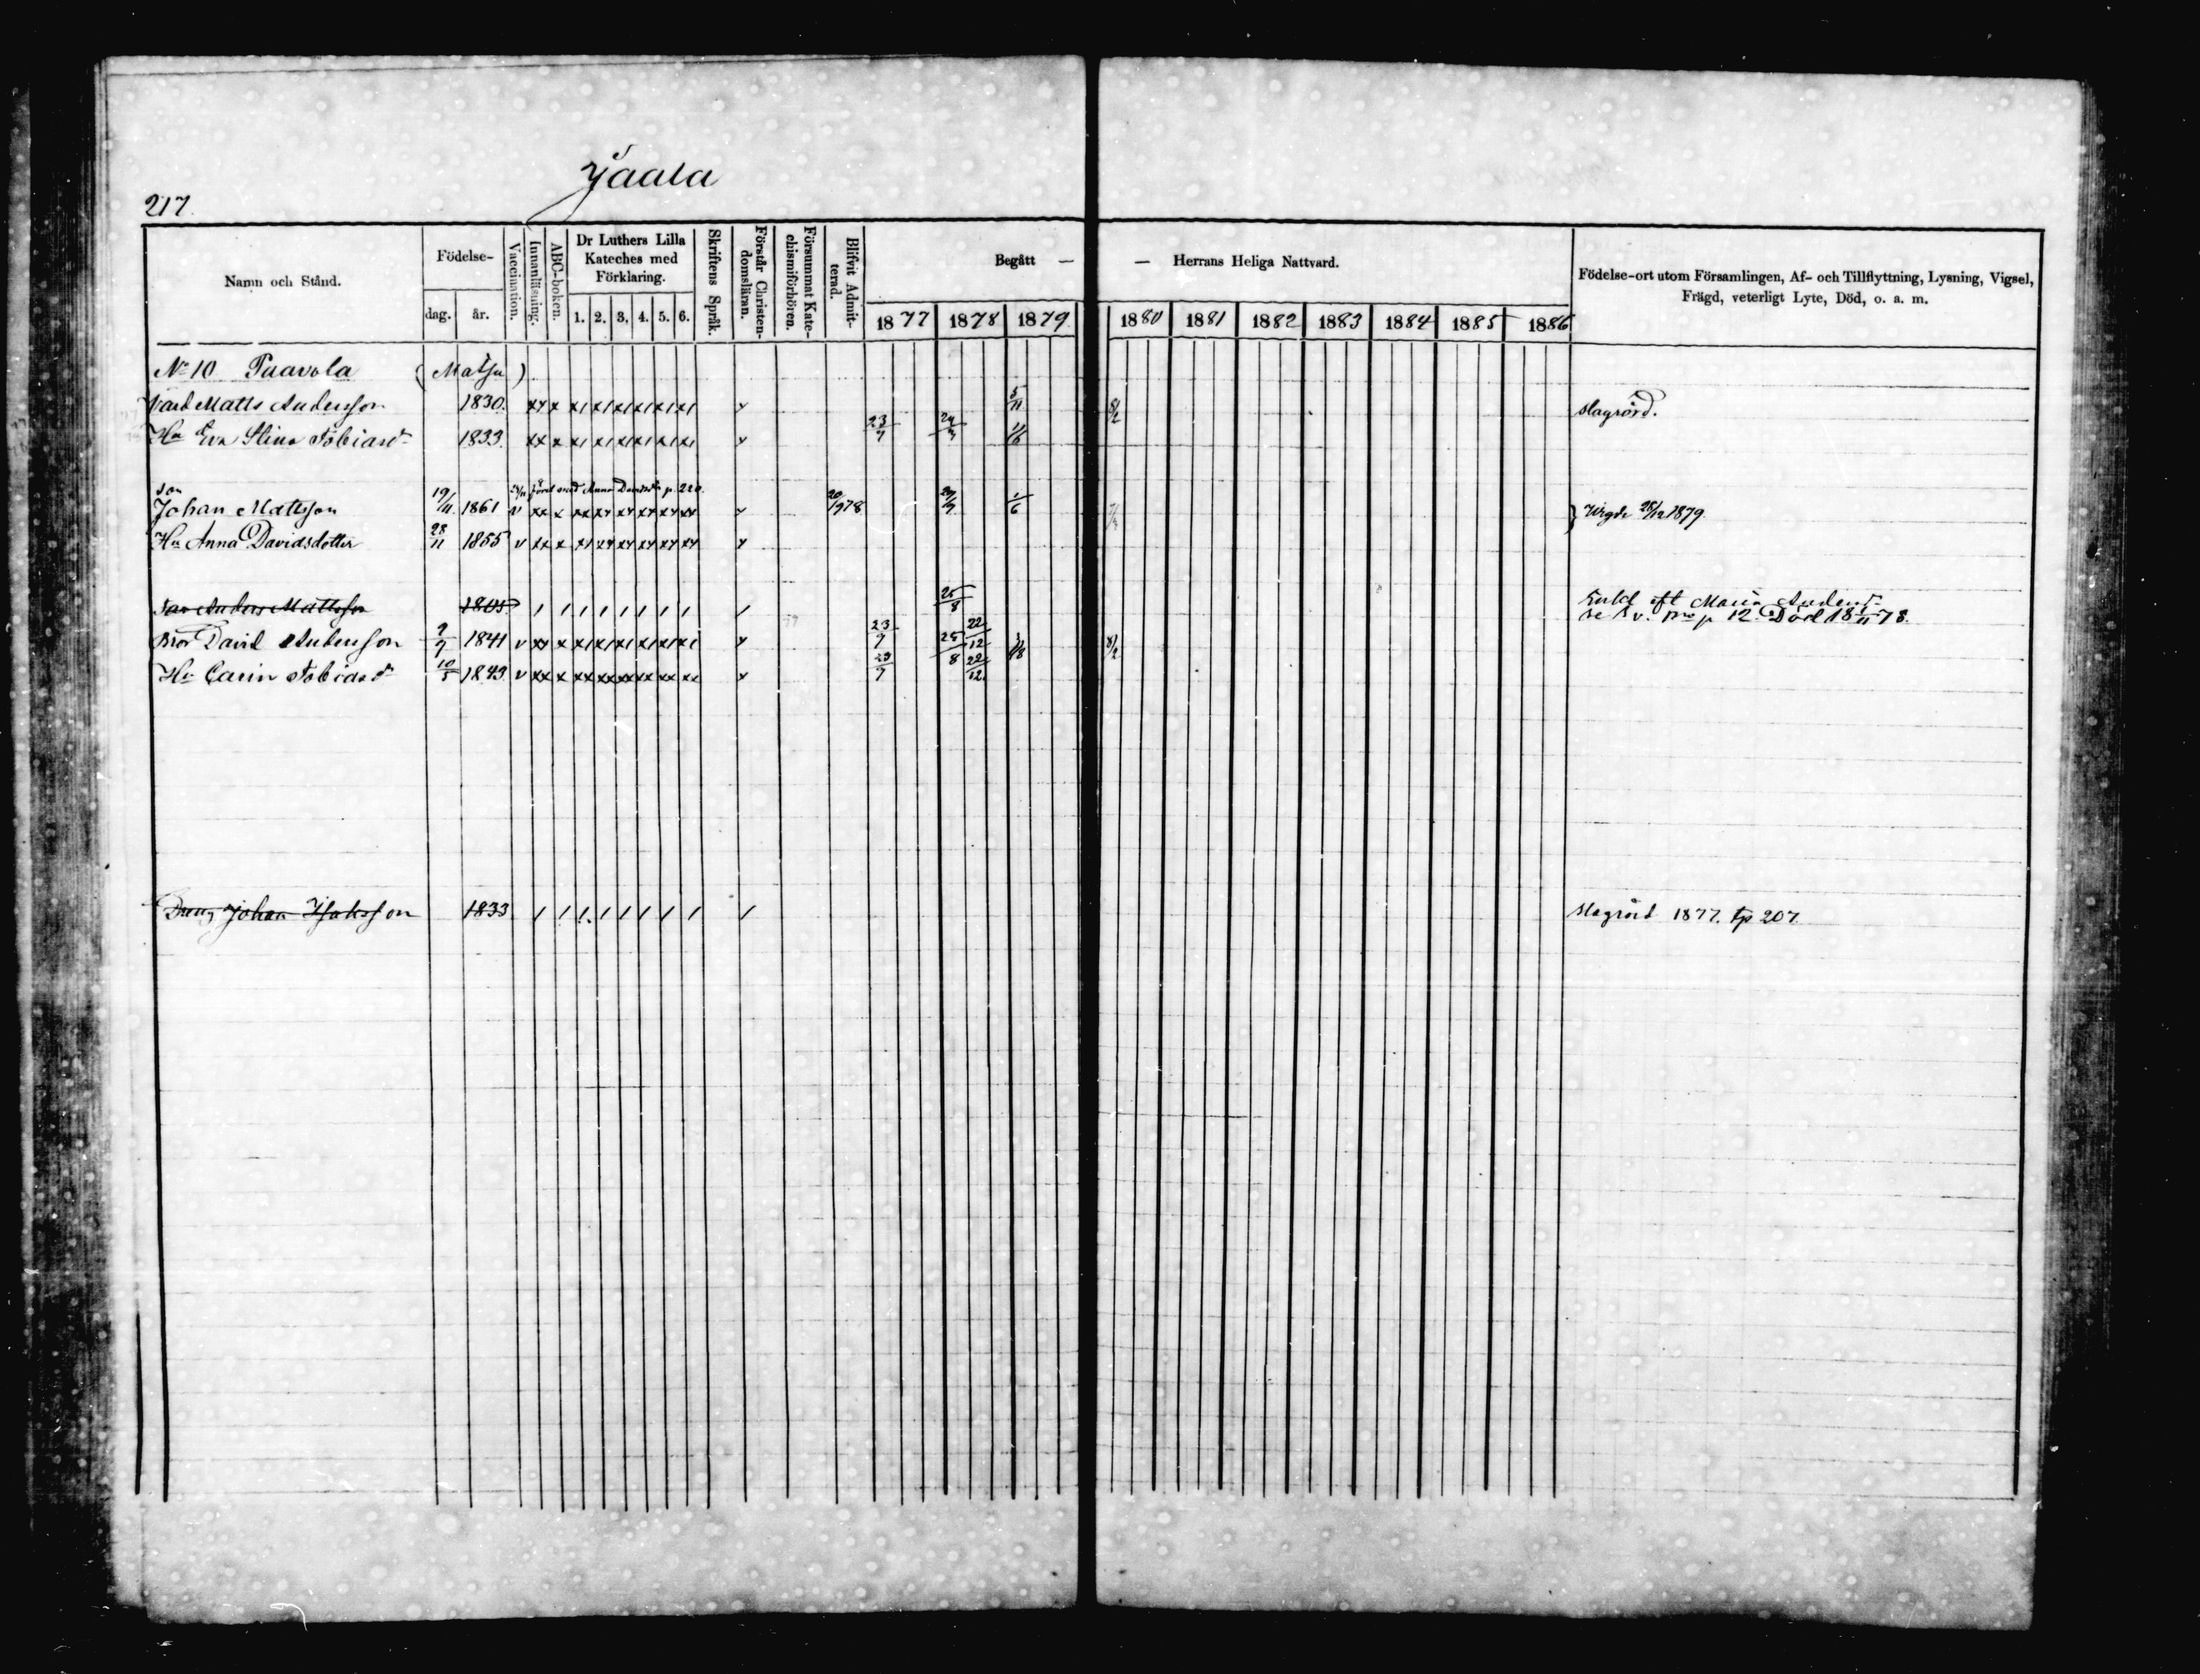 217.
Jaala
Namn och Stånd.
Födelse-
dag. år.
Vaccination.
Innanläsning.
ABC-boken.
Dr Luthers Lilla
Kateches med
Förklaring.
1. 2. 3. 4. 5. 6.
Skriftens Språk.
Förstår Christen-
domsläran.
Försummat Kate-
chismiförhören.
Blifvit Admit-
terad.
Begått — — Herrans Heliga Nattvard.
1877 1878 1879 1880 1881 1882 1883 1884 1885 1886
Födelse-ort utom Församlingen, Af- och Tillflyttning, Lysning, Vigsel,
Frägd, veterligt Lyte, Död, o. a. m.
No 10 Paavola (Matsu)
Matts Andersson 1830. xy x x/ x/ x/ x/ x/ x/ y 5/11 8/2 slagrörd.
Hu Eva Stina Tobiasd 1833. xx x x/ x/ x/ x/ x/ x/ y 23/9
son med Anna Davidsd p. 220.
Johan Mattsson 19/11 1861 v xx x xx xy xy xy xy xy y 20/9 78 1/6 } Vigde 28/12 1879.
Hu Anna Davidsdotter 28/11 1855 v xx x x/ xy xy xy xy xy y
Anders Mattsson 1805 / / / / / / / / / 25/8 Enkl. eft Maria Andersd
p 12. Död 18 5/11 78.
Bror David Andersson 9/9 1841 v xy x x/ x/ x/ x/ x/ x/ y 23/9 25/8 22/12 8/2
Hu Carin Tobiasd 10/5 1843 v xx x xx xx xx xx xx xx y 23/9 22/12
Dreng Johan Isaksson 1833 / / / / / / / / / slagrörd 1877. tp 207.